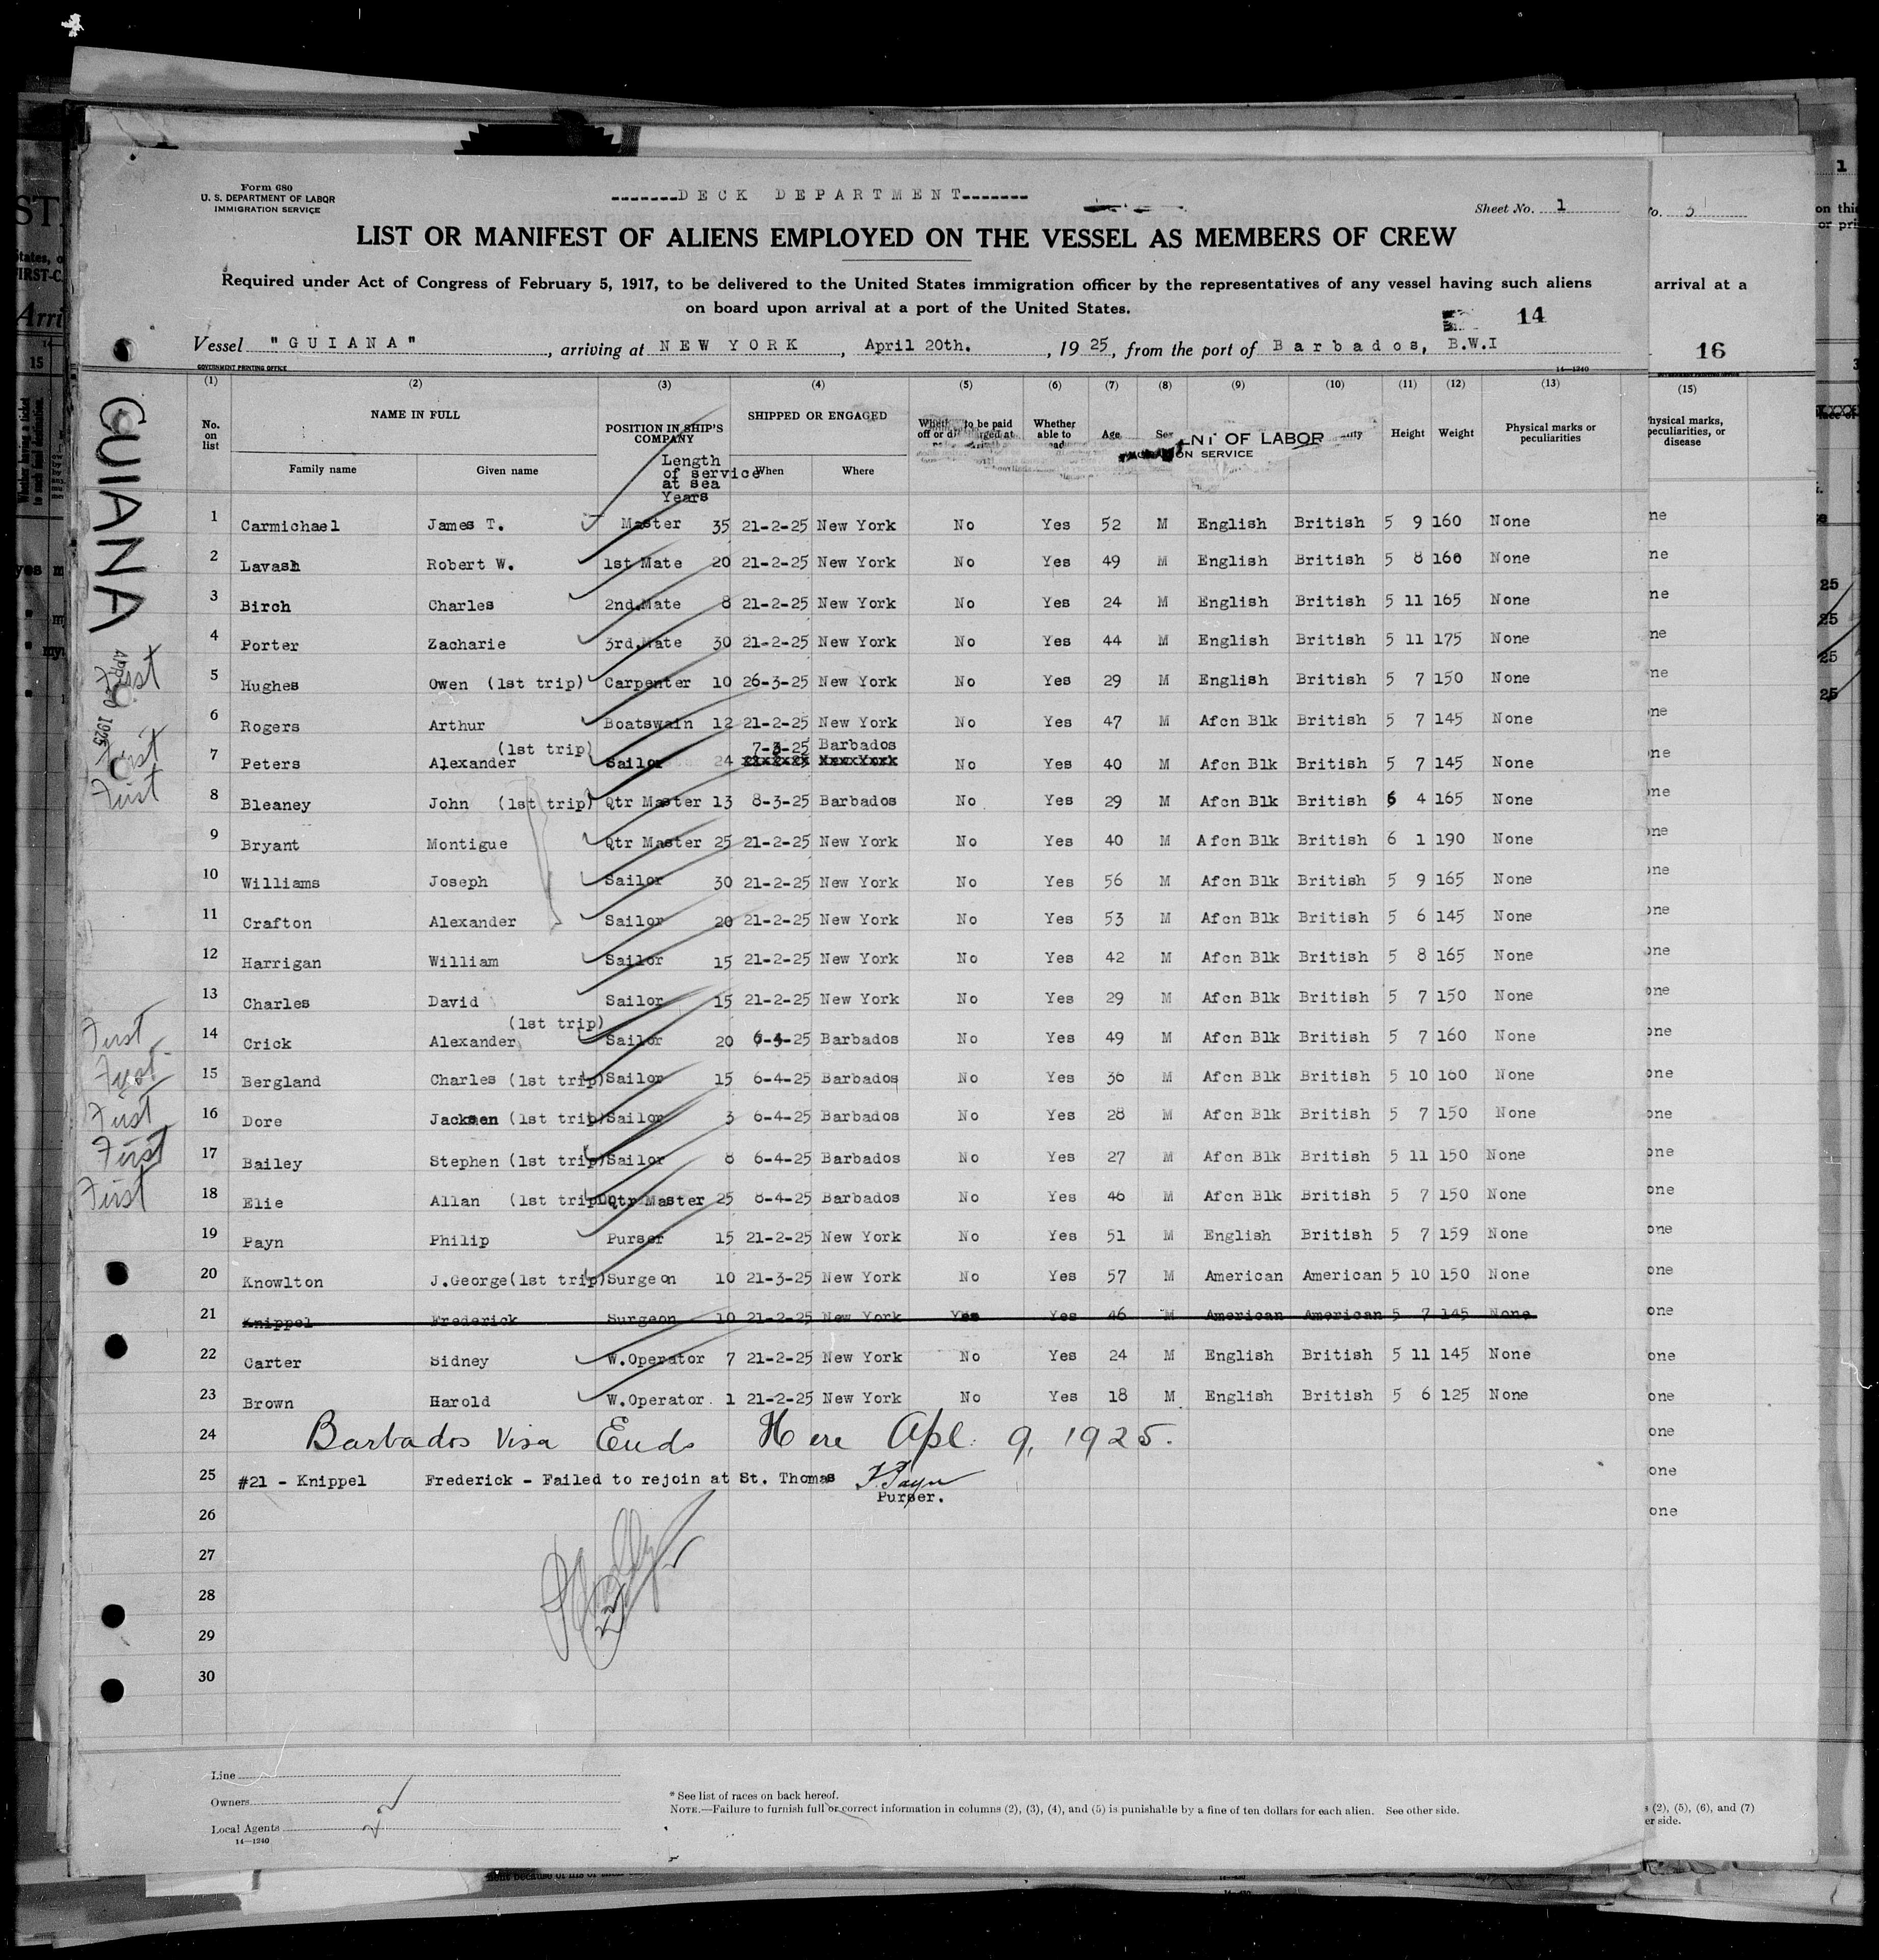 Form 680
U. S. DEPARTMENT OF LABOR
IMMIGRATION SERVICE
-------DECK DEPARTMENT-------
Sheet No. 1
LIST OR MANIFEST OF ALIENS EMPLOYED ON THE VESSEL AS MEMBERS OF CREW
Required under Act of Congress of February 5, 1917, to be delivered to the United States immigration officer by the representatives of any vessel having such aliens
on board upon arrival at a port of the United States.
14
Vessel "GUIANA", arriving at NEW YORK, April 20th., 1925, from the port of Barbados, B.W.I
GOVERNMENT PRINTING OFFICE
14—1240
(1) (2) (3) (4) (5) (6) (7) (8) (9) (10) (11) (12) (13)
No. on list
NAME IN FULL
Family name
Given name
POSITION IN SHIP'S COMPANY
Length of service at sea Years
SHIPPED OR ENGAGED
When
Where
to be paid off or
Whether able to
Age
Sex
OF LABOR
ON SERVICE
Height
Weight
Physical marks or peculiarities
GUIANA
APR 20 1925
1 Carmichael James T. Master 35 21-2-25 New York No Yes 52 M English British 5 9 160 None
2 Lavash Robert W. 1st Mate 20 21-2-25 New York No Yes 49 M English British 5 8 160 None
3 Birch Charles 2nd.Mate 8 21-2-25 New York No Yes 24 M English British 5 11 165 None
4 Porter Zacharie 3rd.Mate 30 21-2-25 New York No Yes 44 M English British 5 11 175 None
First 5 Hughes Owen (1st trip) Carpenter 10 26-3-25 New York No Yes 29 M English British 5 7 150 None
6 Rogers Arthur Boatswain 12 21-2-25 New York No Yes 47 M Afcn Blk British 5 7 145 None
First 7 Peters Alexander (1st trip) Sailor 24 7-3-25 Barbados No Yes 40 M Afcn Blk British 5 7 145 None
First 8 Bleaney John (1st trip) Qtr Master 13 8-3-25 Barbados No Yes 29 M Afcn Blk British 6 4 165 None
9 Bryant Montigue Qtr Master 25 21-2-25 New York No Yes 40 M Afcn Blk British 6 1 190 None
10 Williams Joseph Sailor 30 21-2-25 New York No Yes 56 M Afcn Blk British 5 9 165 None
11 Crafton Alexander Sailor 20 21-2-25 New York No Yes 53 M Afcn Blk British 5 6 145 None
12 Harrigan William Sailor 15 21-2-25 New York No Yes 42 M Afcn Blk British 5 8 165 None
13 Charles David Sailor 15 21-2-25 New York No Yes 29 M Afcn Blk British 5 7 150 None
First 14 Crick Alexander (1st trip) Sailor 20 6-4-25 Barbados No Yes 49 M Afcn Blk British 5 7 160 None
First 15 Bergland Charles (1st trip) Sailor 15 6-4-25 Barbados No Yes 36 M Afcn Blk British 5 10 160 None
First 16 Dore Jacksen (1st trip) Sailor 3 6-4-25 Barbados No Yes 28 M Afcn Blk British 5 7 150 None
First 17 Bailey Stephen (1st trip) Sailor 8 6-4-25 Barbados No Yes 27 M Afcn Blk British 5 11 150 None
First 18 Elie Allan (1st trip) Qtr Master 25 8-4-25 Barbados No Yes 46 M Afcn Blk British 5 7 150 None
19 Payn Philip Purser 15 21-2-25 New York No Yes 51 M English British 5 7 159 None
20 Knowlton J.George (1st trip) Surgeon 10 21-3-25 New York No Yes 57 M American American 5 10 150 None
21 Knippel Frederick Surgeon 10 21-2-25 New York Yes Yes 46 M American American 5 7 145 None
22 Carter Sidney W.Operator 7 21-2-25 New York No Yes 24 M English British 5 11 145 None
23 Brown Harold W.Operator. 1 21-2-25 New York No Yes 18 M English British 5 6 125 None
24 Barbados Visa Ends Here Apl. 9, 1925.
25 #21 - Knippel Frederick - Failed to rejoin at St. Thomas P. Payn
Purser.
26
27
28
29
30
Line
Owners
Local Agents
14—1240
* See list of races on back hereof.
NOTE.—Failure to furnish full or correct information in columns (2), (3), (4), and (5) is punishable by a fine of ten dollars for each alien. See other side.
arrival at a
16
(15)
Physical marks, peculiarities, or disease
(2), (5), (6), and (7)
er side.